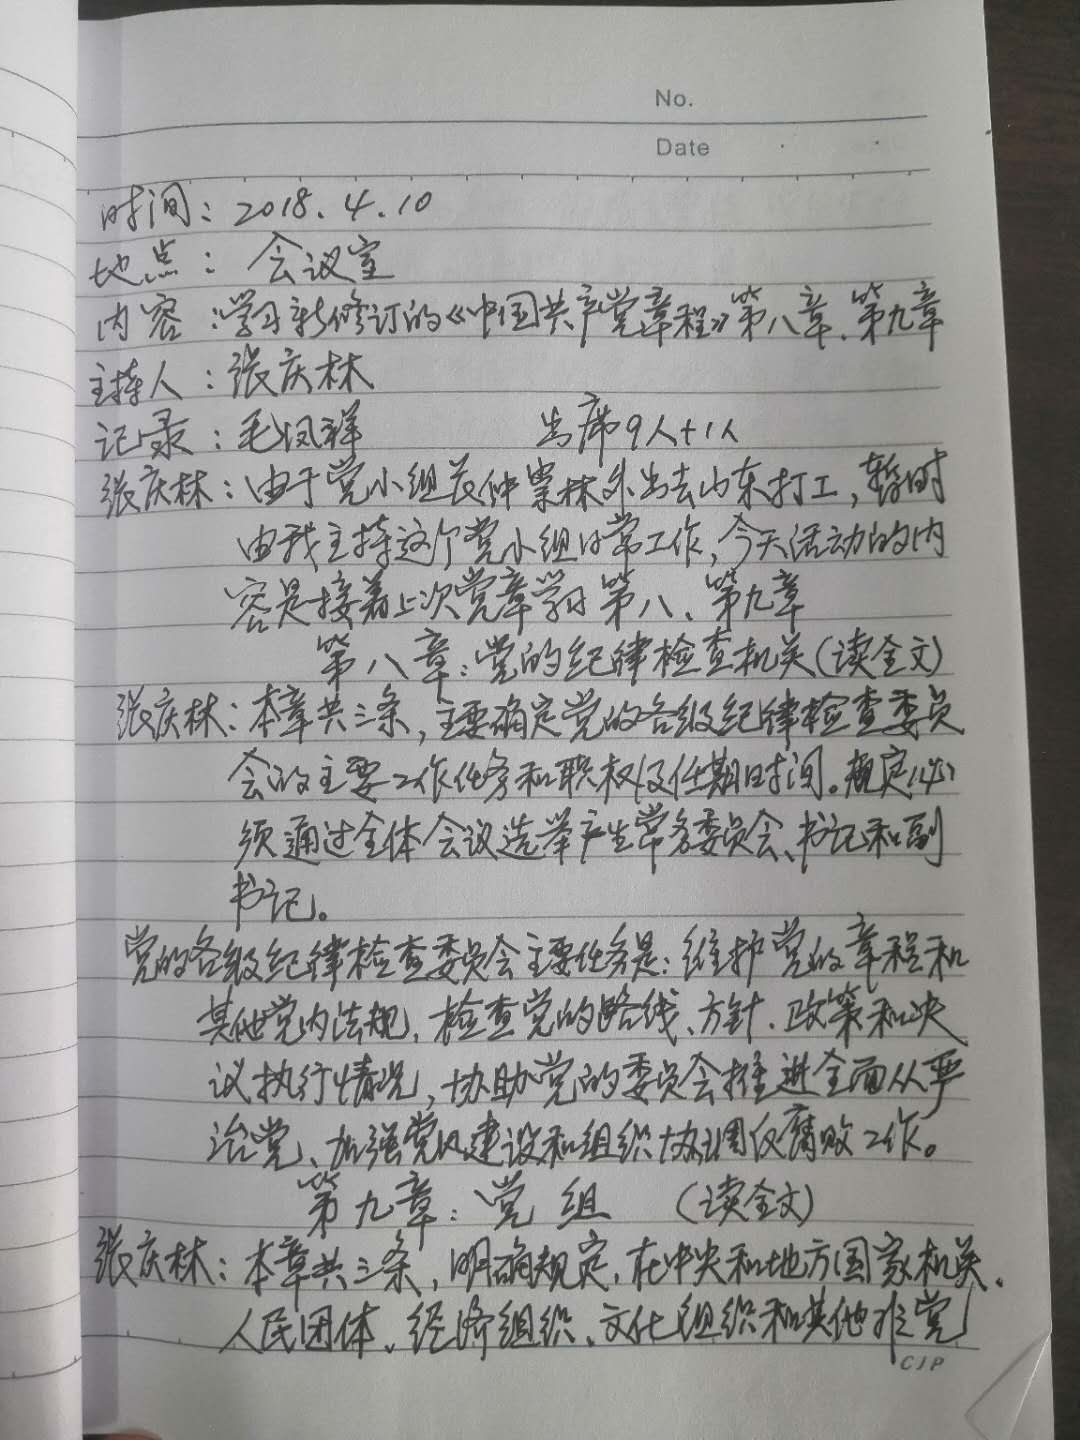 No.
Date
时间：2018.4.10
地点：会议室
内容：学习新修订的《中国共产党章程》第八章、第九章
主持人：张庆林
记录：毛凤祥 出席9人+1人
张庆林：由于党小组长仲崇林外出去山东打工，暂时
由我主持这个党小组日常工作，今天活动的内
容是接着上次党章学习第八、第九章
第八章：党的纪律检查机关（读全文）
张庆林：本章共三条，主要确定党的各级纪律检查委员
会的主要工作任务和职权及任期时间。规定必
须通过全体会议选举产生常务委员会、书记和副
书记。
党的各级纪律检查委员会主要任务是：维护党的章程和
其他党内法规，检查党的路线、方针、政策和决
议执行情况，协助党的委员会推进全面从严
治党、加强党风建设和组织协调反腐败工作。
第九章：党组 （读全文）
张庆林：本章共三条，明确规定，在中央和地方国家机关、
人民团体、经济组织、文化组织和其他非党
CJP